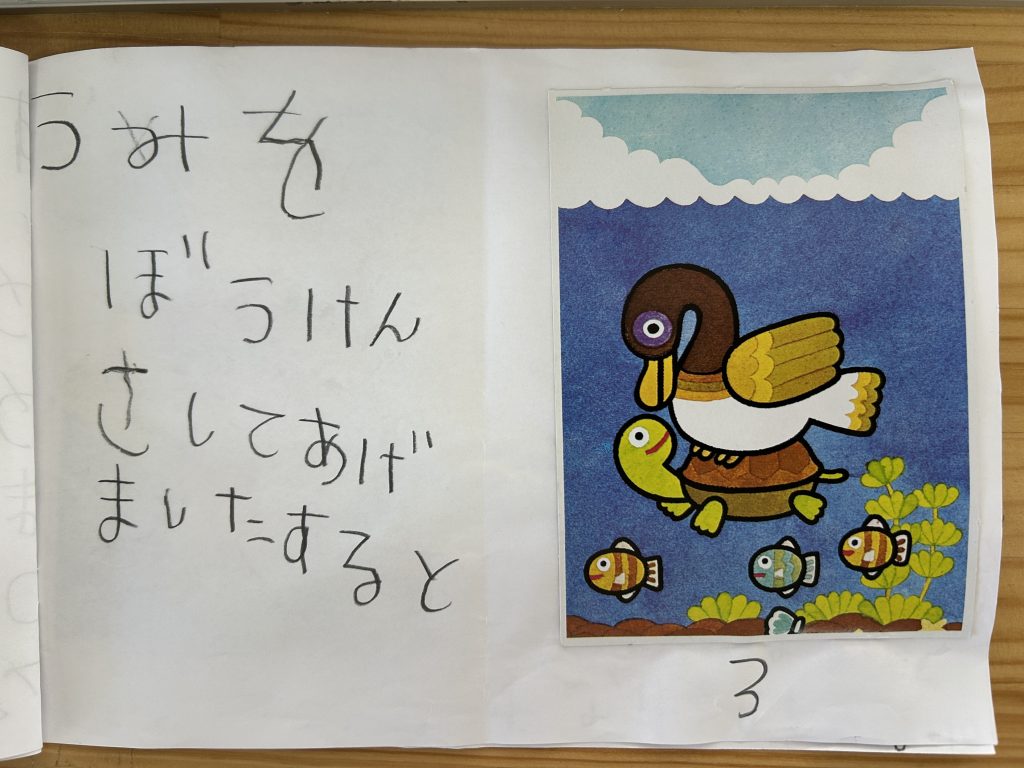 うみを
ぼうけん
さしてあげ
ましたすると
3